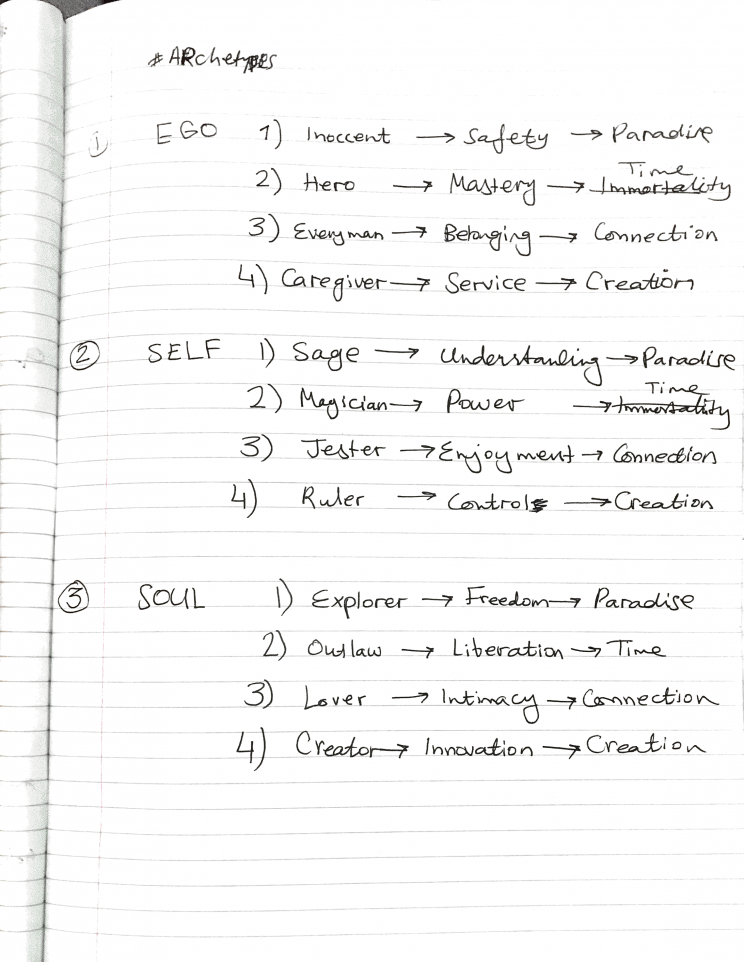 # ARchetypes
i EGO 1) Inoccent → Safety → Paradise
2) Hero → Mastery → Immortality Time
3) Everyman → Belonging → Connection
4) Caregiver → Service → Creation
2 SELF 1) Sage → Understanding → Paradise
2) Magician → Power → Immortality Time
3) Jester → Enjoyment → Connection
4) Ruler → Control → Creation
3 SOUL 1) Explorer → Freedom → Paradise
2) Outlaw → Liberation → Time
3) Lover → Intimacy → Connection
4) Creator → Innovation → Creation